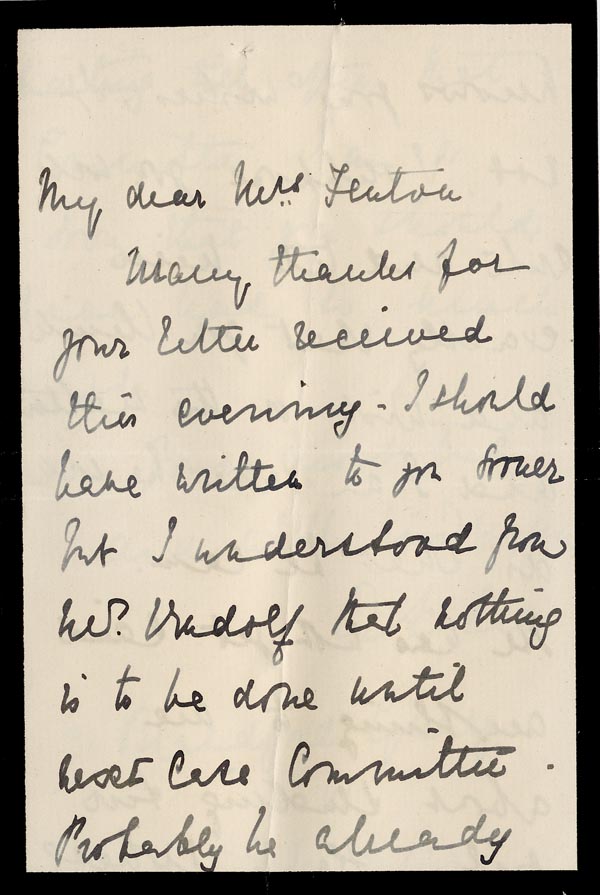 My dear Mrs Fenton
Many thanks for
your letter received
this evening - I should
have written to you sooner
but I understood from
Mr. Rudolf that nothing
is to be done until
next Case Committee.
Probably he already